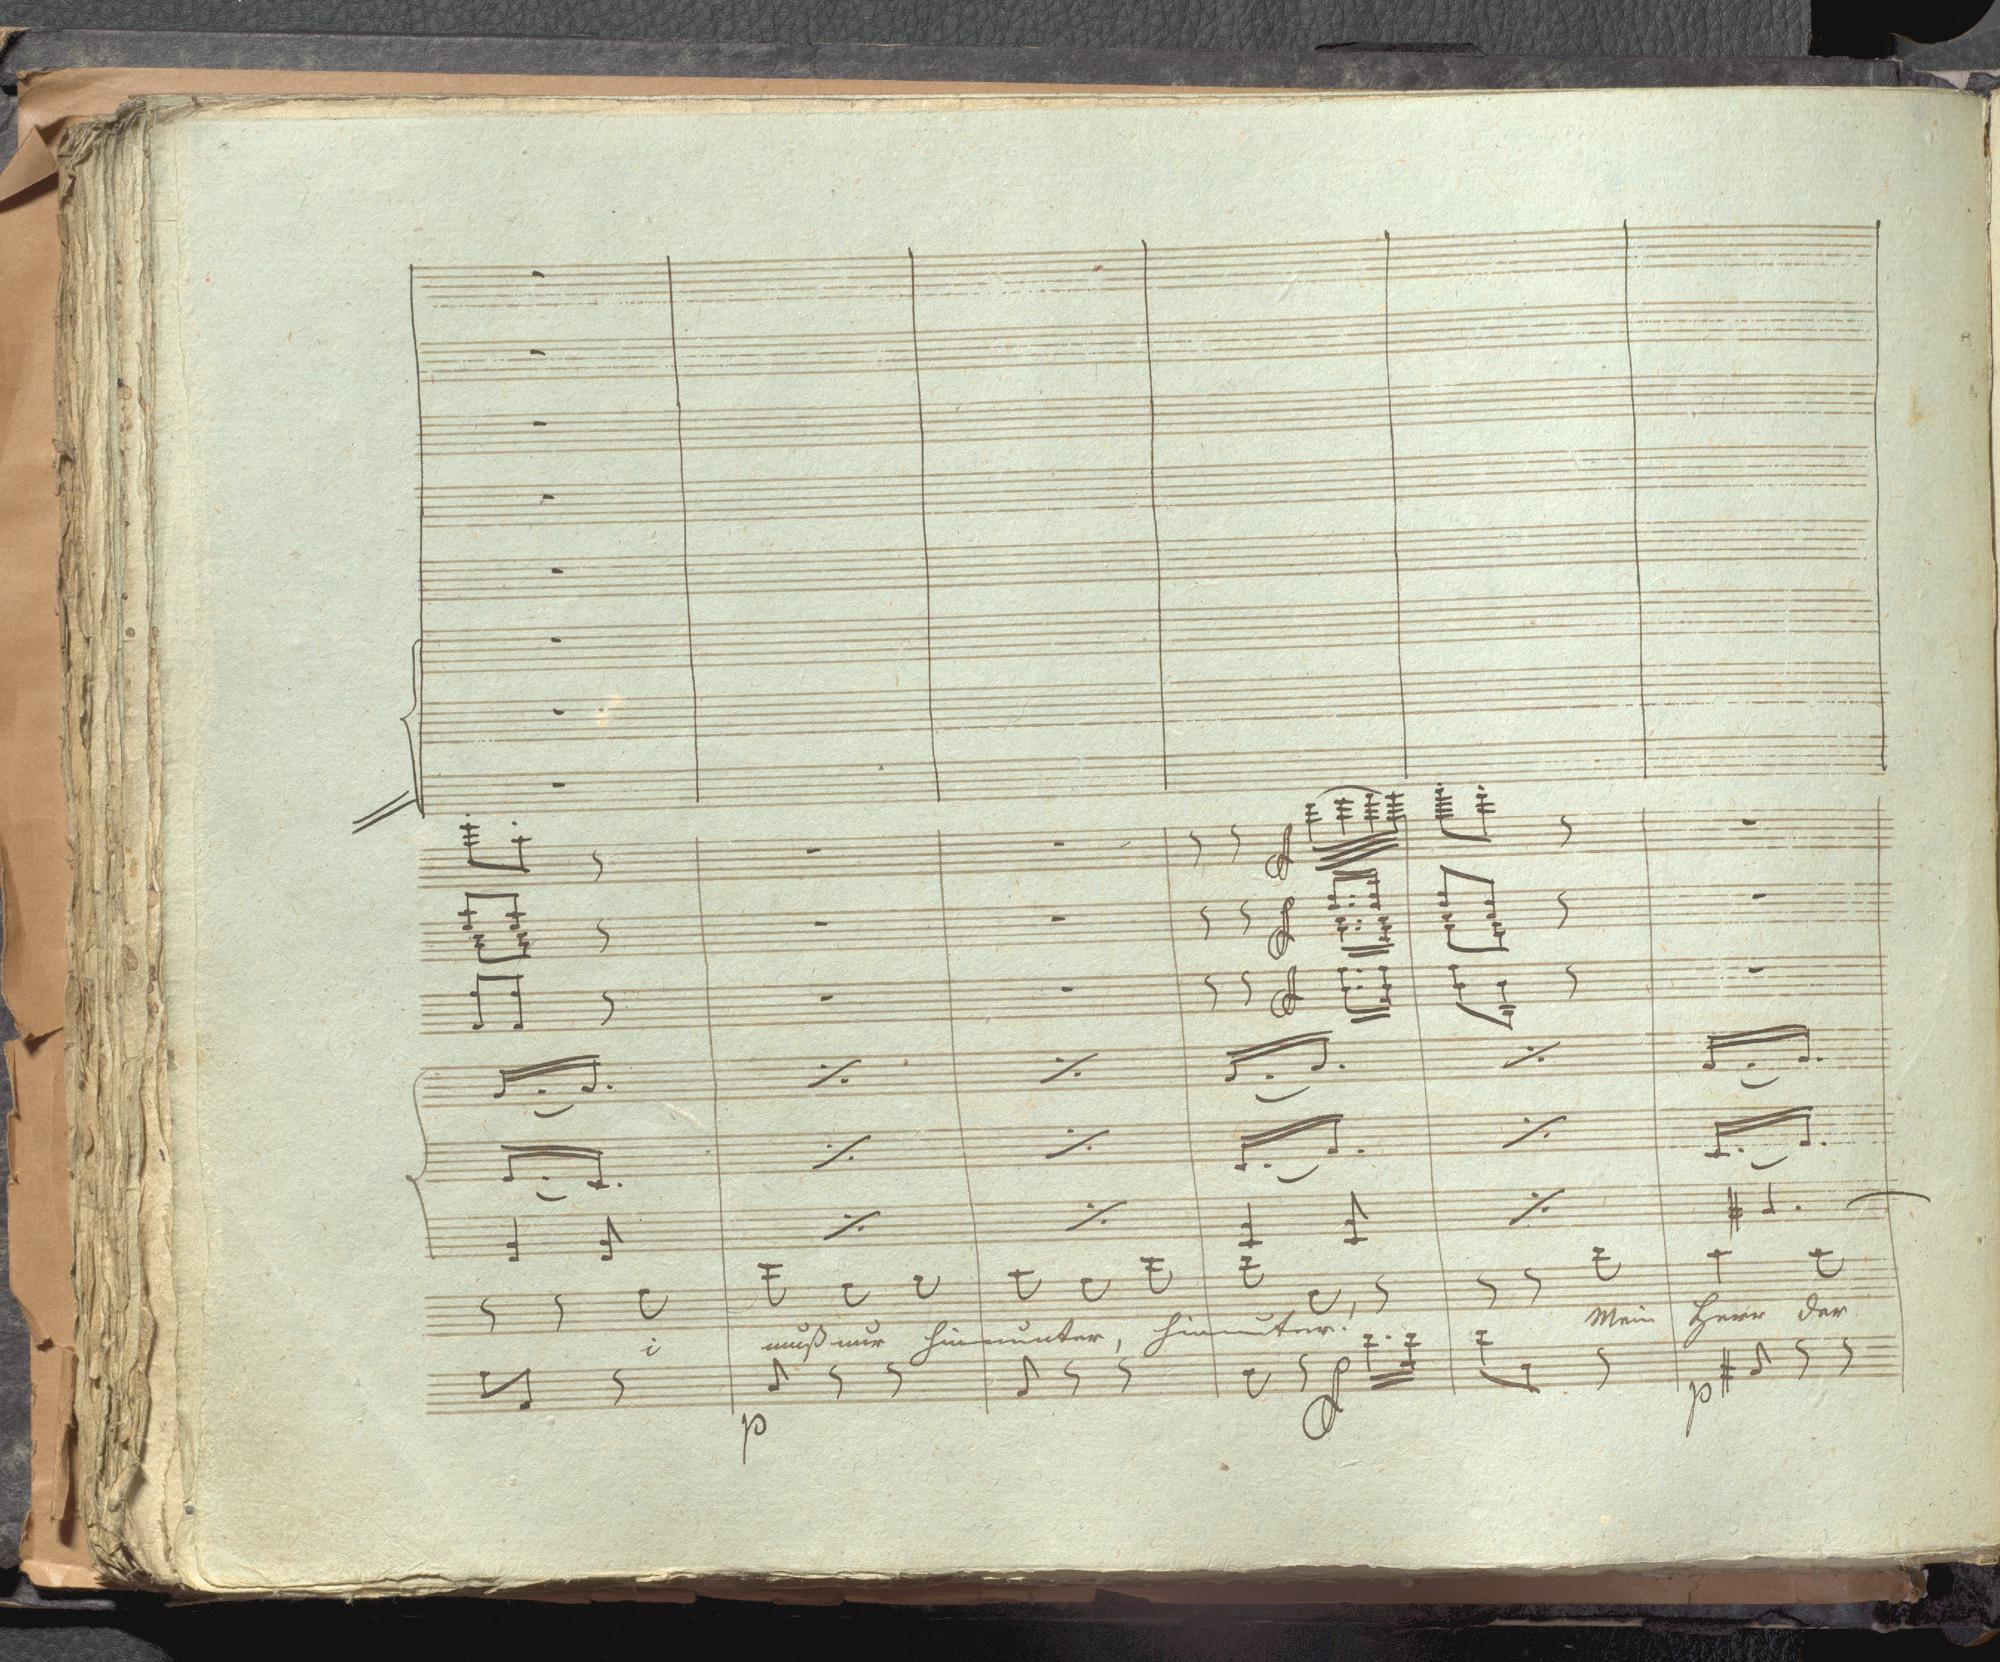 f f
f
i muß nur hinunter, hinunter! Mein Herr der
p f p